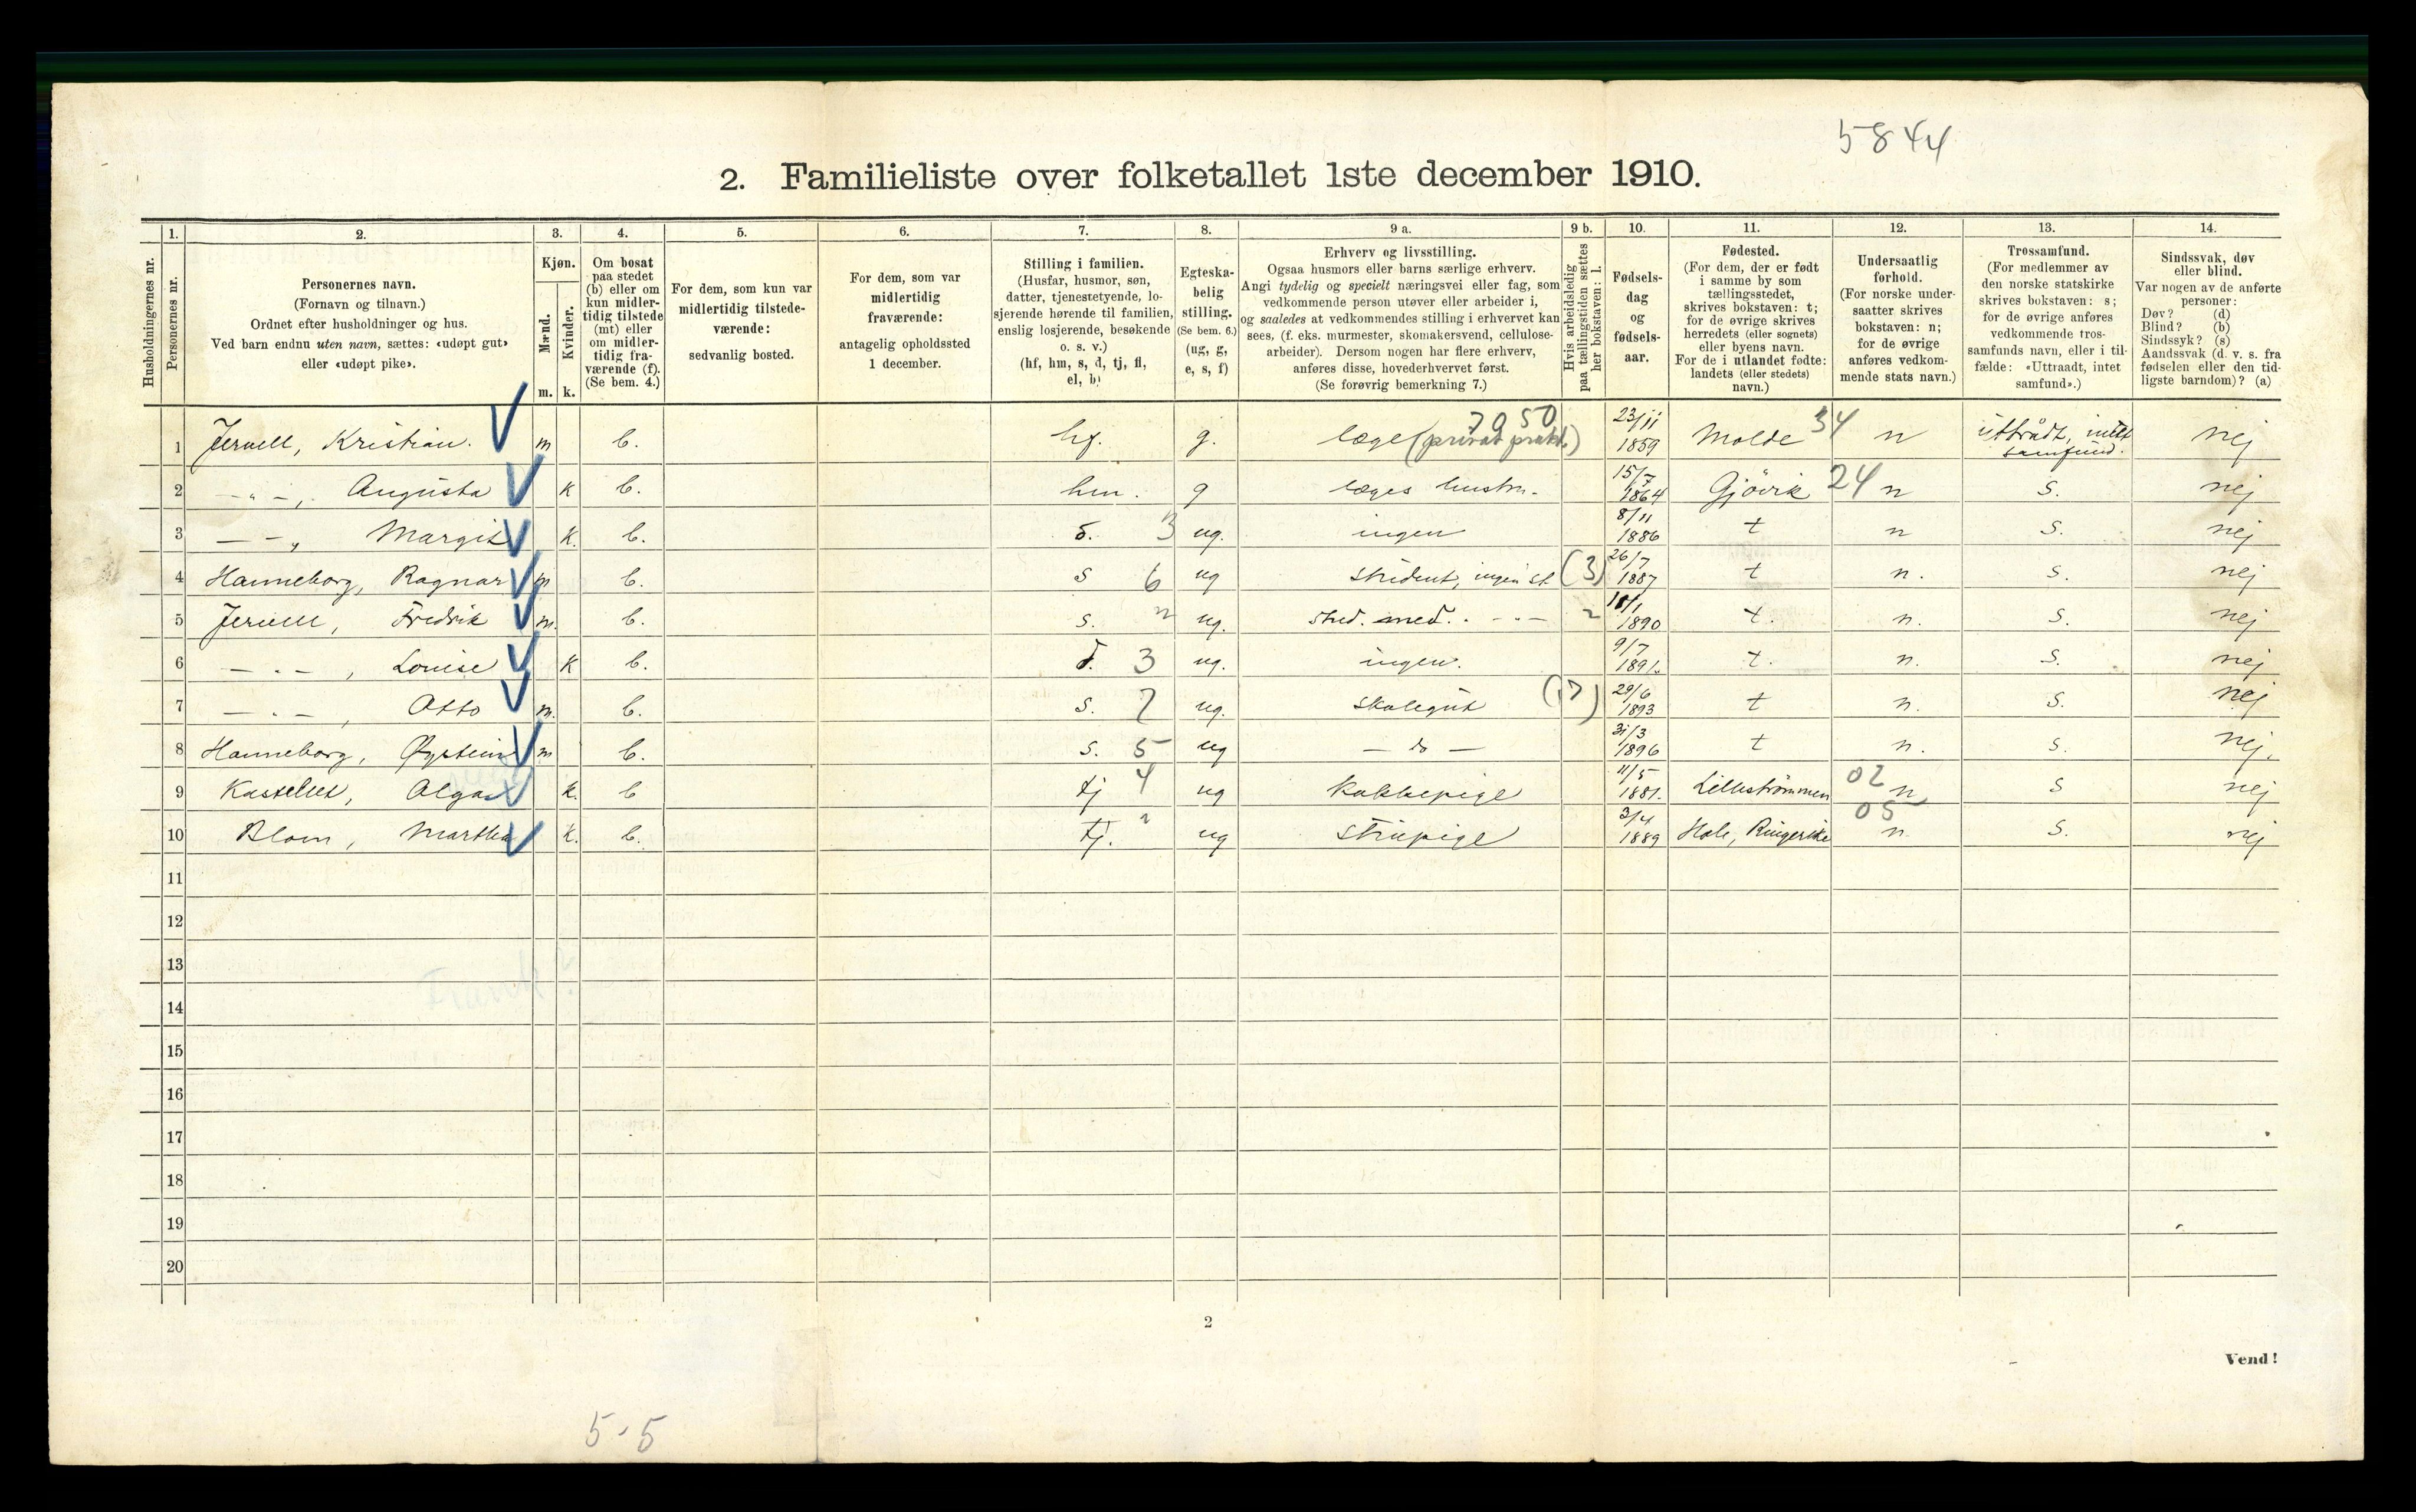 5844
2. Familieliste over folketallet 1ste december 1910.
Husholdningernes nr.
1. Personernes nr.
2. Personernes navn.
(Fornavn og tilnavn.)
Ordnet efter husholdninger og hus.
Ved barn endnu uten navn, sættes: «udøpt gut»
eller «udøpt pike».
3. Kjøn.
Mænd. m.
Kvinder. k.
4. Om bosat
paa stedet
(b) eller om
kun midler-
tidig tilstede
(mt) eller
om midler-
tidig fra-
værende (f).
(Se bem. 4.)
5. For dem, som kun var
midlertidig tilstede-
værende:
sedvanlig bosted.
6. For dem, som var
midlertidig
fraværende:
antagelig opholdssted
1 december.
7. Stilling i familien.
(Husfar, husmor, søn,
datter, tjenestetyende, lo-
sjerende hørende til familien,
enslig losjerende, besøkende
o. s. v.)
(hf, hm, s, d, tj, fl,
el, b)
8. Egteska-
belig
stilling.
(Se bem. 6.)
(ug, g,
e, s, f)
9 a. Erhverv og livsstilling.
Ogsaa husmors eller barns særlige erhverv.
Angi tydelig og specielt næringsvei eller fag, som
vedkommende person utøver eller arbeider i,
og saaledes at vedkommendes stilling i erhvervet kan
sees, (f. eks. murmester, skomakersvend, cellulose-
arbeider). Dersom nogen har flere erhverv,
anføres disse, hovederhvervet først.
(Se forøvrig bemerkning 7.)
9 b. Hvis arbeidsledig
paa tællingstiden sættes
her bokstaven: l.
10. Fødsels-
dag
og
fødsels-
aar.
11. Fødested.
(For dem, der er født
i samme by som
tællingsstedet,
skrives bokstaven: t;
for de øvrige skrives
herredets (eller sognets)
eller byens navn.
For de i utlandet fødte:
landets (eller stedets)
navn.)
12. Undersaatlig
forhold.
(For norske under-
saatter skrives
bokstaven: n;
for de øvrige
anføres vedkom-
mende stats navn.)
13. Trossamfund.
(For medlemmer av
den norske statskirke
skrives bokstaven: s;
for de øvrige anføres
vedkommende tros-
samfunds navn, eller i til-
fælde: «Uttraadt, intet
samfund».)
14. Sindssvak, døv
eller blind.
Var nogen av de anførte
personer:
Døv? (d)
Blind? (b)
Sindssyk? (s)
Aandssvak (d. v. s. fra
fødselen eller den tid-
ligste barndom)? (a)
1 Jervell, Kristian. m b. hf. g. læge (privat prakt.) 7050 23/11 1859 Molde 34 n uttrådt, intet samfund. nej
2 — " —, Augusta k b. hm. g læges hustru. 15/7 1864 Gjövik 24 n s. nej
3 — " — Margit k. b. d. 3 ug. ingen 8/11 1886 t n s. nej
4 Hanneborg, Ragnar m b. s 6 ug student, ingen st. (3) 26/7 1887 t n. s. nej
5 Jervell, Fredrik m. b. s. 2 ug. stud. med. - " - 2 1890 t. n. s. nej
6 — " —, Louise k b. d. 3 ug. ingen. 9/7 1891. t. n. s. nej
7 — " —, Otto m. b. s. 7 ug. skolegut (17) 29/6 1893 t n. s. nej
8 Hanneborg, Øystein m b. s. 5 ug — do — 31/3 1896 t n. s. nej.
9 Olga k. b tj 4 ug kokkepige 11/5 1881. Lilleströmmen 02 n s nej
10 Blom, Martha k. b. tj. 2 ug stuepige 3/4 1889 Hole, Ringerike 05 n. s. nej
11
12
13
14
15
16
17
18
19
20
2
Vend!
5-5